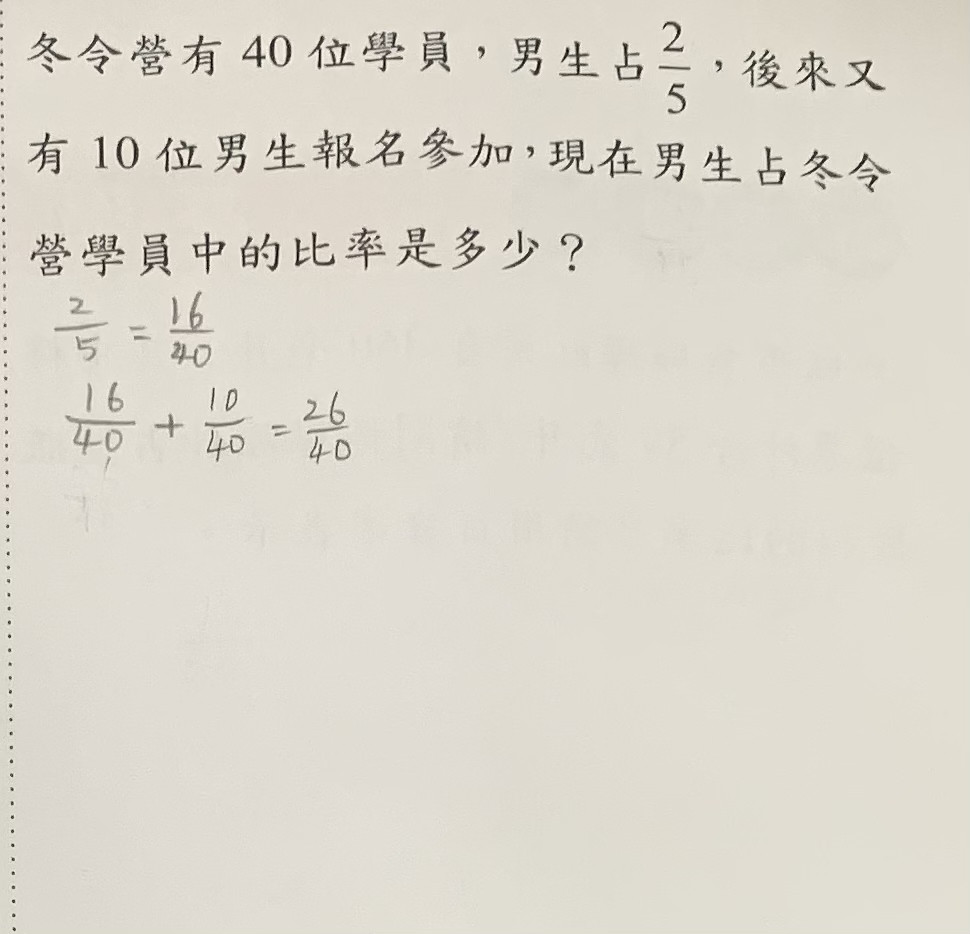 冬令營有 40 位學員，男生占 2/5，後來又
有 10 位男生報名參加，現在男生占冬令
營學員中的比率是多少？
2/5 = 16/40
16/40 + 10/40 = 26/40